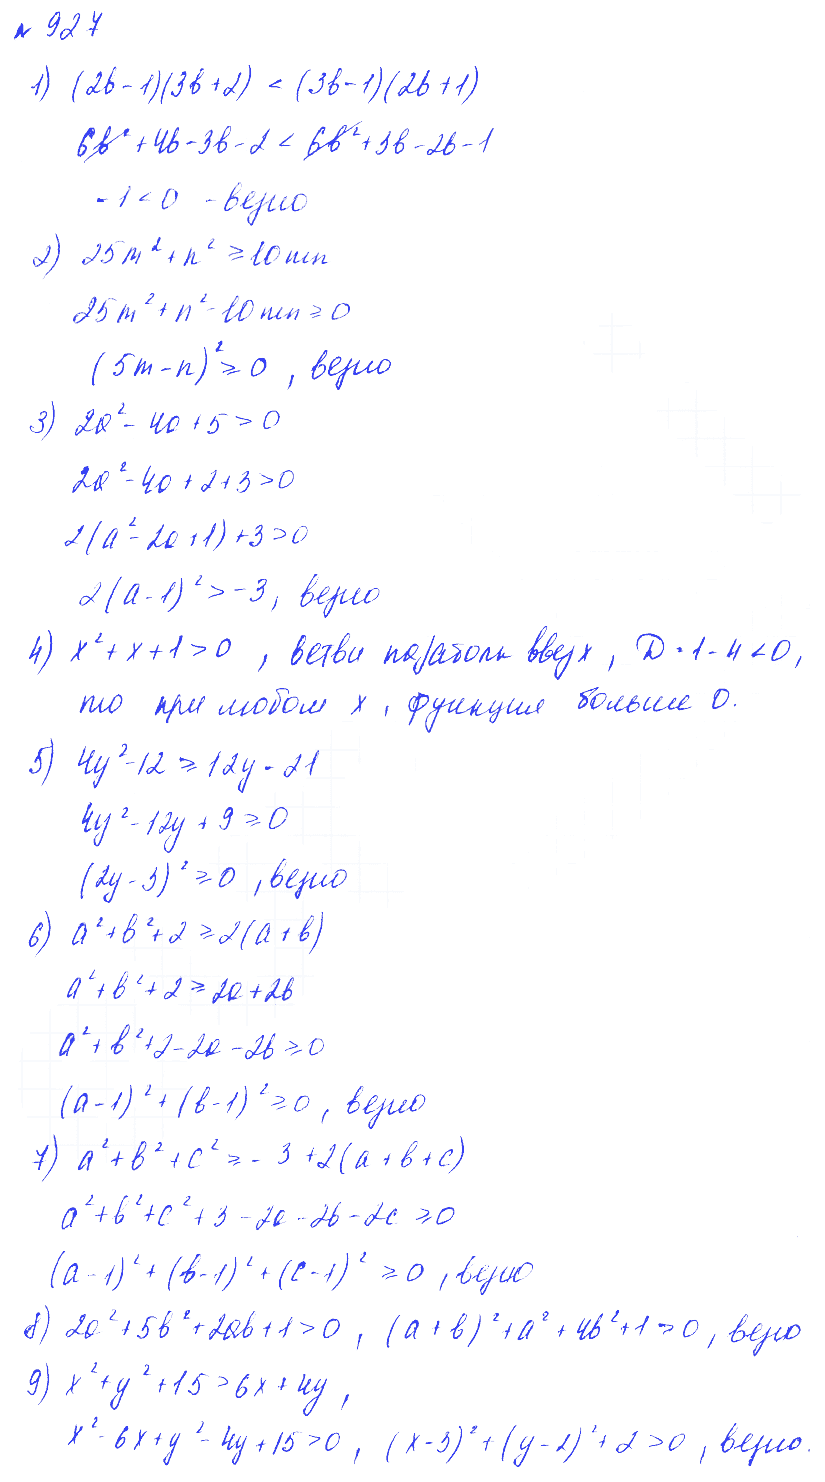 № 927
1) (2b-1)(3b+2) < (3b-1)(2b+1)
6b²+4b-3b-2 < 6b²+3b-2b-1
-1<0 - верно
2) 25m²+n² ≥ 10mn
25m²+n²-10mn ≥ 0
(5m-n)² ≥ 0, верно
3) 2a²-4a+5>0
2a²-4a+2+3>0
2(a²-2a+1)+3>0
2(a-1)²>-3, верно
4) x²+x+1>0, ветви параболы вверх, D=1-4<0,
то при любом x, функция больше 0.
5) 4y²-12 ≥ 12y-21
4y²-12y+9 ≥ 0
(2y-3)² ≥ 0, верно
6) a²+b²+2 ≥ 2(a+b)
a²+b²+2 ≥ 2a+2b
a²+b²+2-2a-2b ≥ 0
(a-1)²+(b-1)² ≥ 0, верно
7) a²+b²+c² ≥ -3+2(a+b+c)
a²+b²+c²+3-2a-2b-2c ≥ 0
(a-1)²+(b-1)²+(c-1)² ≥ 0, верно
8) 2a²+5b²+2ab+1>0, (a+b)²+a²+4b²+1>0, верно
9) x²+y²+15>6x+4y,
x²-6x+y²-4y+15>0, (x-3)²+(y-2)²+2>0, верно.